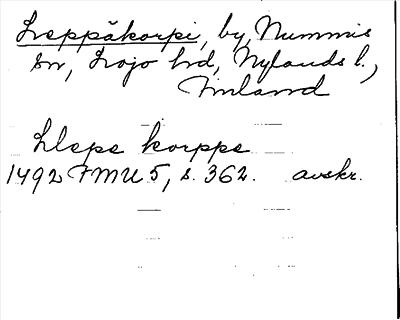 Leppäkorpi, by, Nummis
sn, Lojo hd, Nylands l.,
Finland
Llepe korppe
1492 FMU 5, s. 362. avskr.